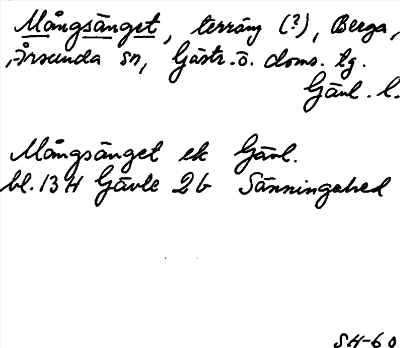 Mångsänget, terräng (?), Berga,
Årsunda sn, Gästr. ö. doms. tg.
Gävl. l.
Mångsänget ek Gävl.
bl. 13 H Gävle 2b Sänningahed
SH-60